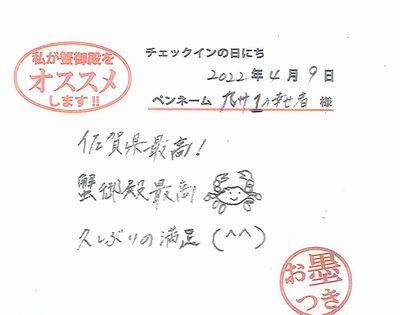 私が蟹御殿を
オススメ
します!!
チェックインの日にち
2022年4月9日
ペンネーム 九州1の幸せ者 様
佐賀県最高!
蟹御殿最高
久しぶりの満足 (^^)
お墨
つき